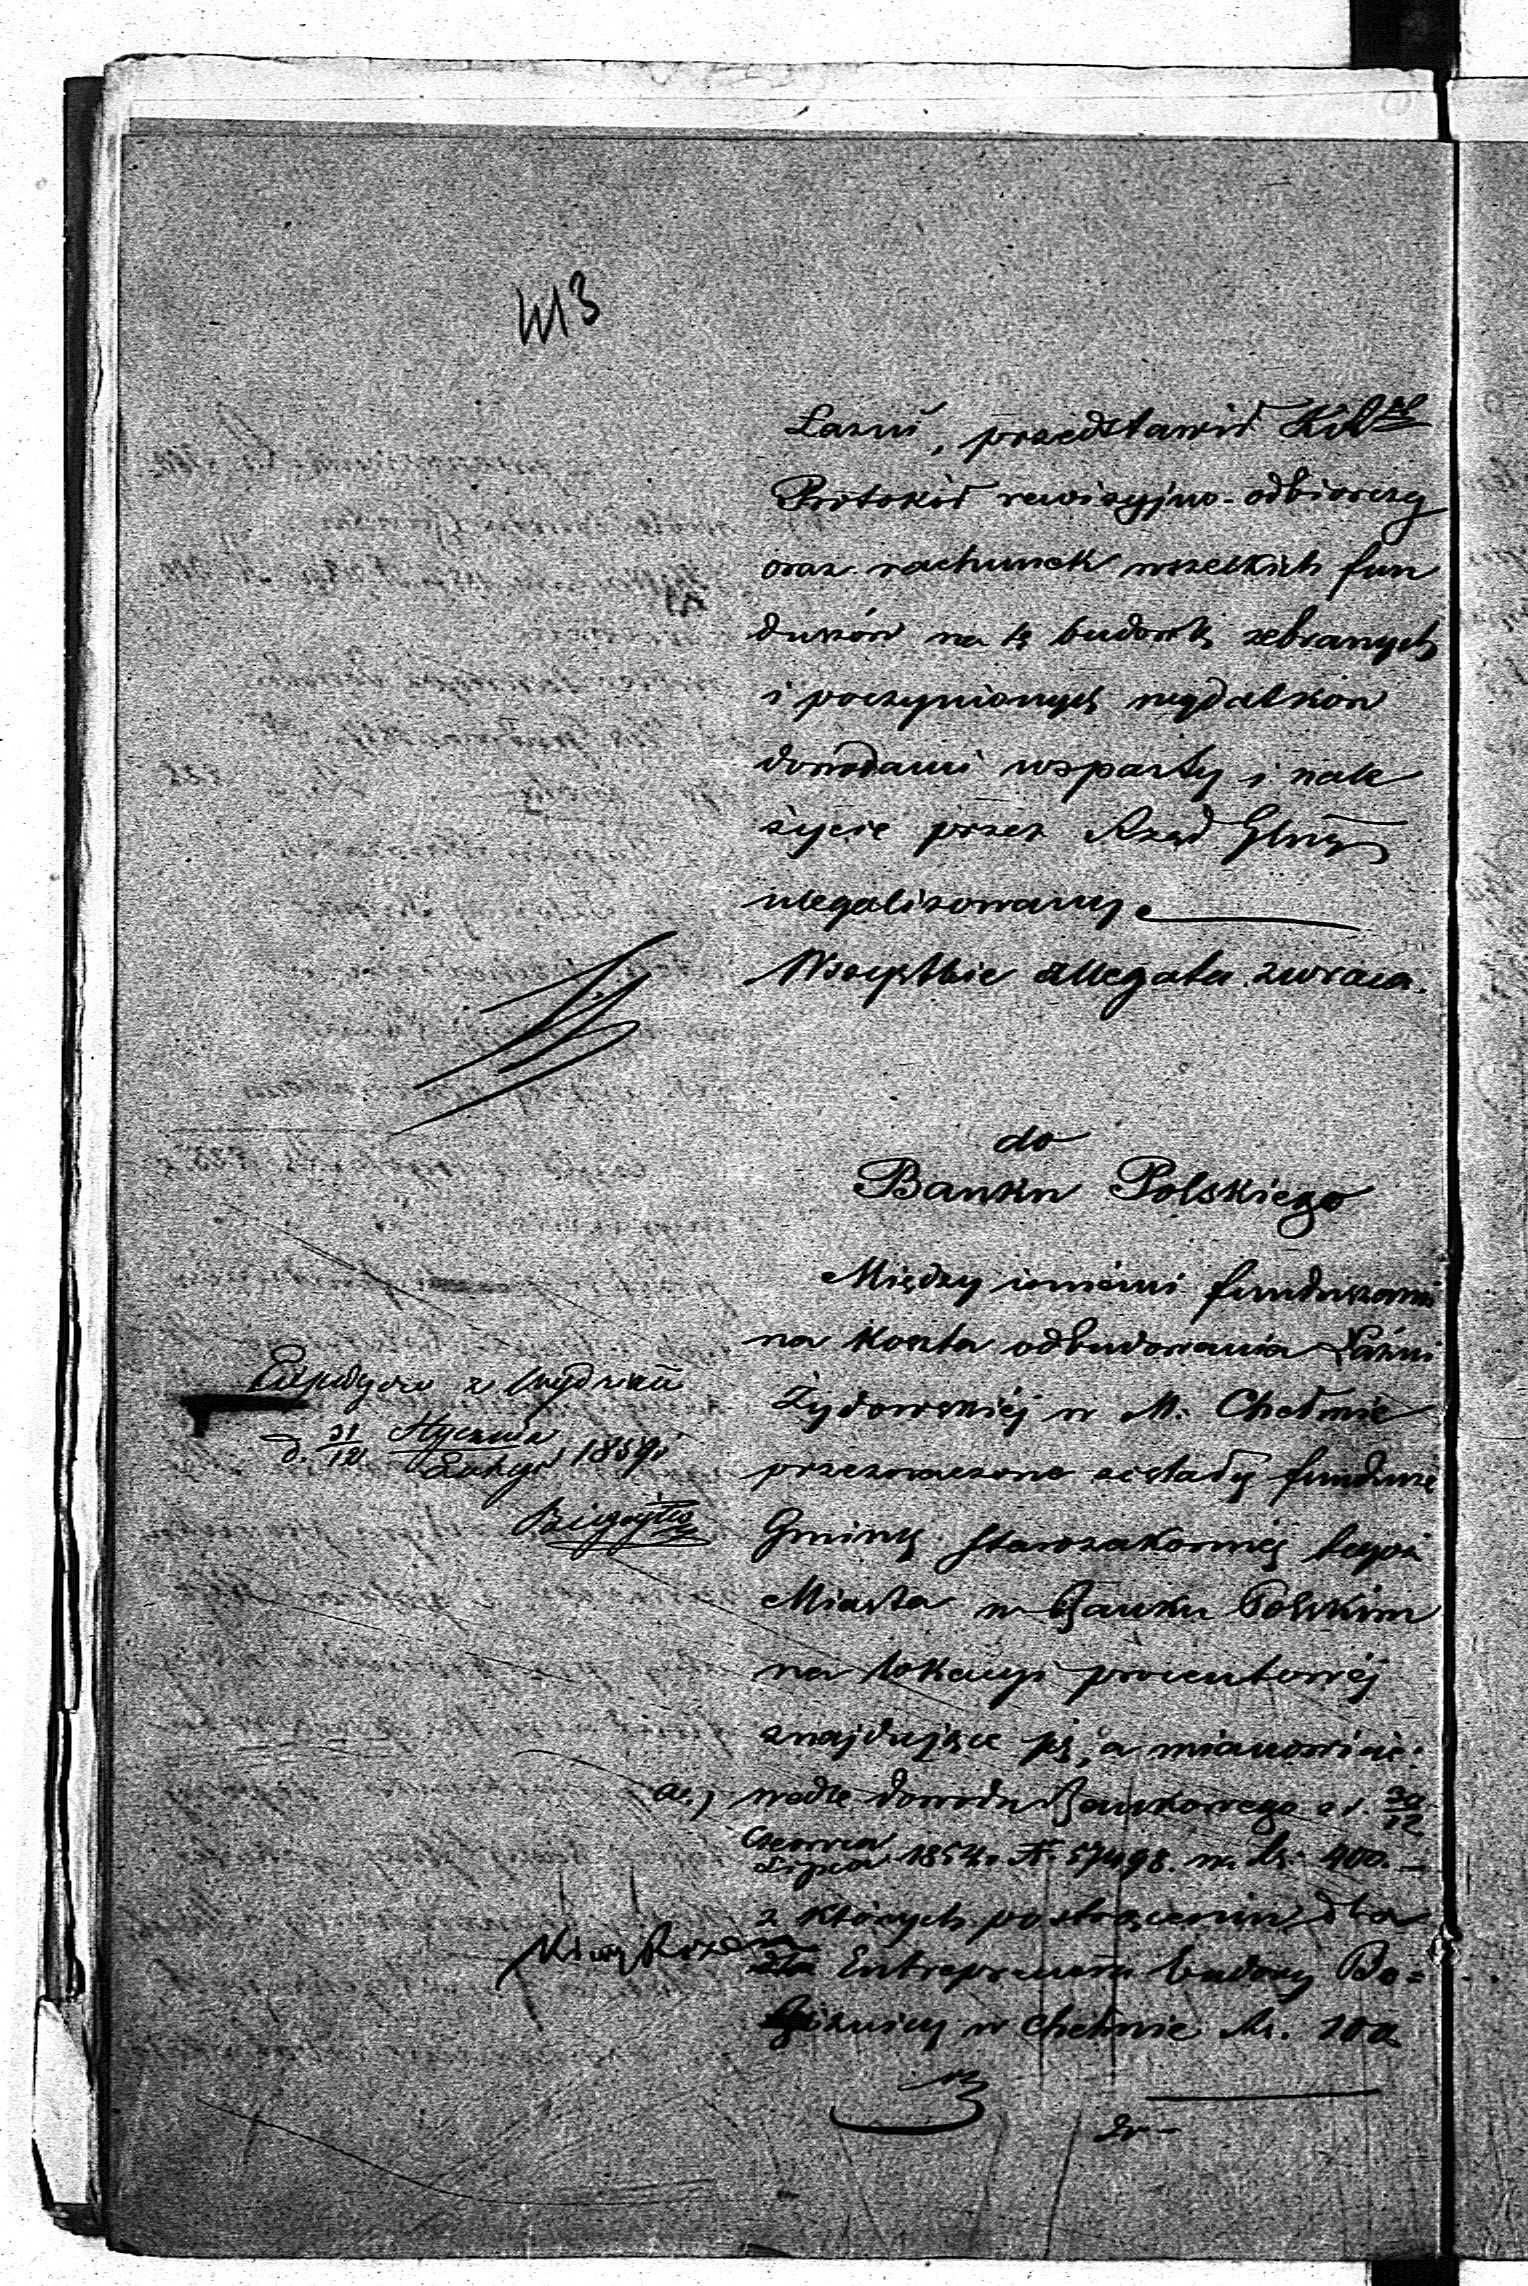 413
Łaźni, przedstawił Kil
Protokół rewizyjno-odbiorczy
oraz rachunek wszelkich fun
duszów na tę budowlę zebranych
i poczynionych wydatków
dowodami wsparty i nale
życie przez Rząd Glny
ulegalizowany.
Wszystkie allegata zwraca.
do
Banku Polskiego
Między innémi funduszami
na koszta odbudowania Łaźni
Żydowskiéj w M. Chełmie
przeznaczone zostały fundusze
Gminy Starozakonnéj tegoż
Miasta w Banku Polskim
na lokacyi procentowéj
znajdujące się, a mianowicie:
a., wedle dowodu Bankowego z d. 30/12
Czerwca/Lipca 1854 r. N. 57498. na rs. 400.—
z których po strąceniu dla
Entreprenera budowy Bo=
żnicy w Chełmie rs. 100
Expedyow z Wydziału
d. 31/12 Stycznia/Lutego 1859